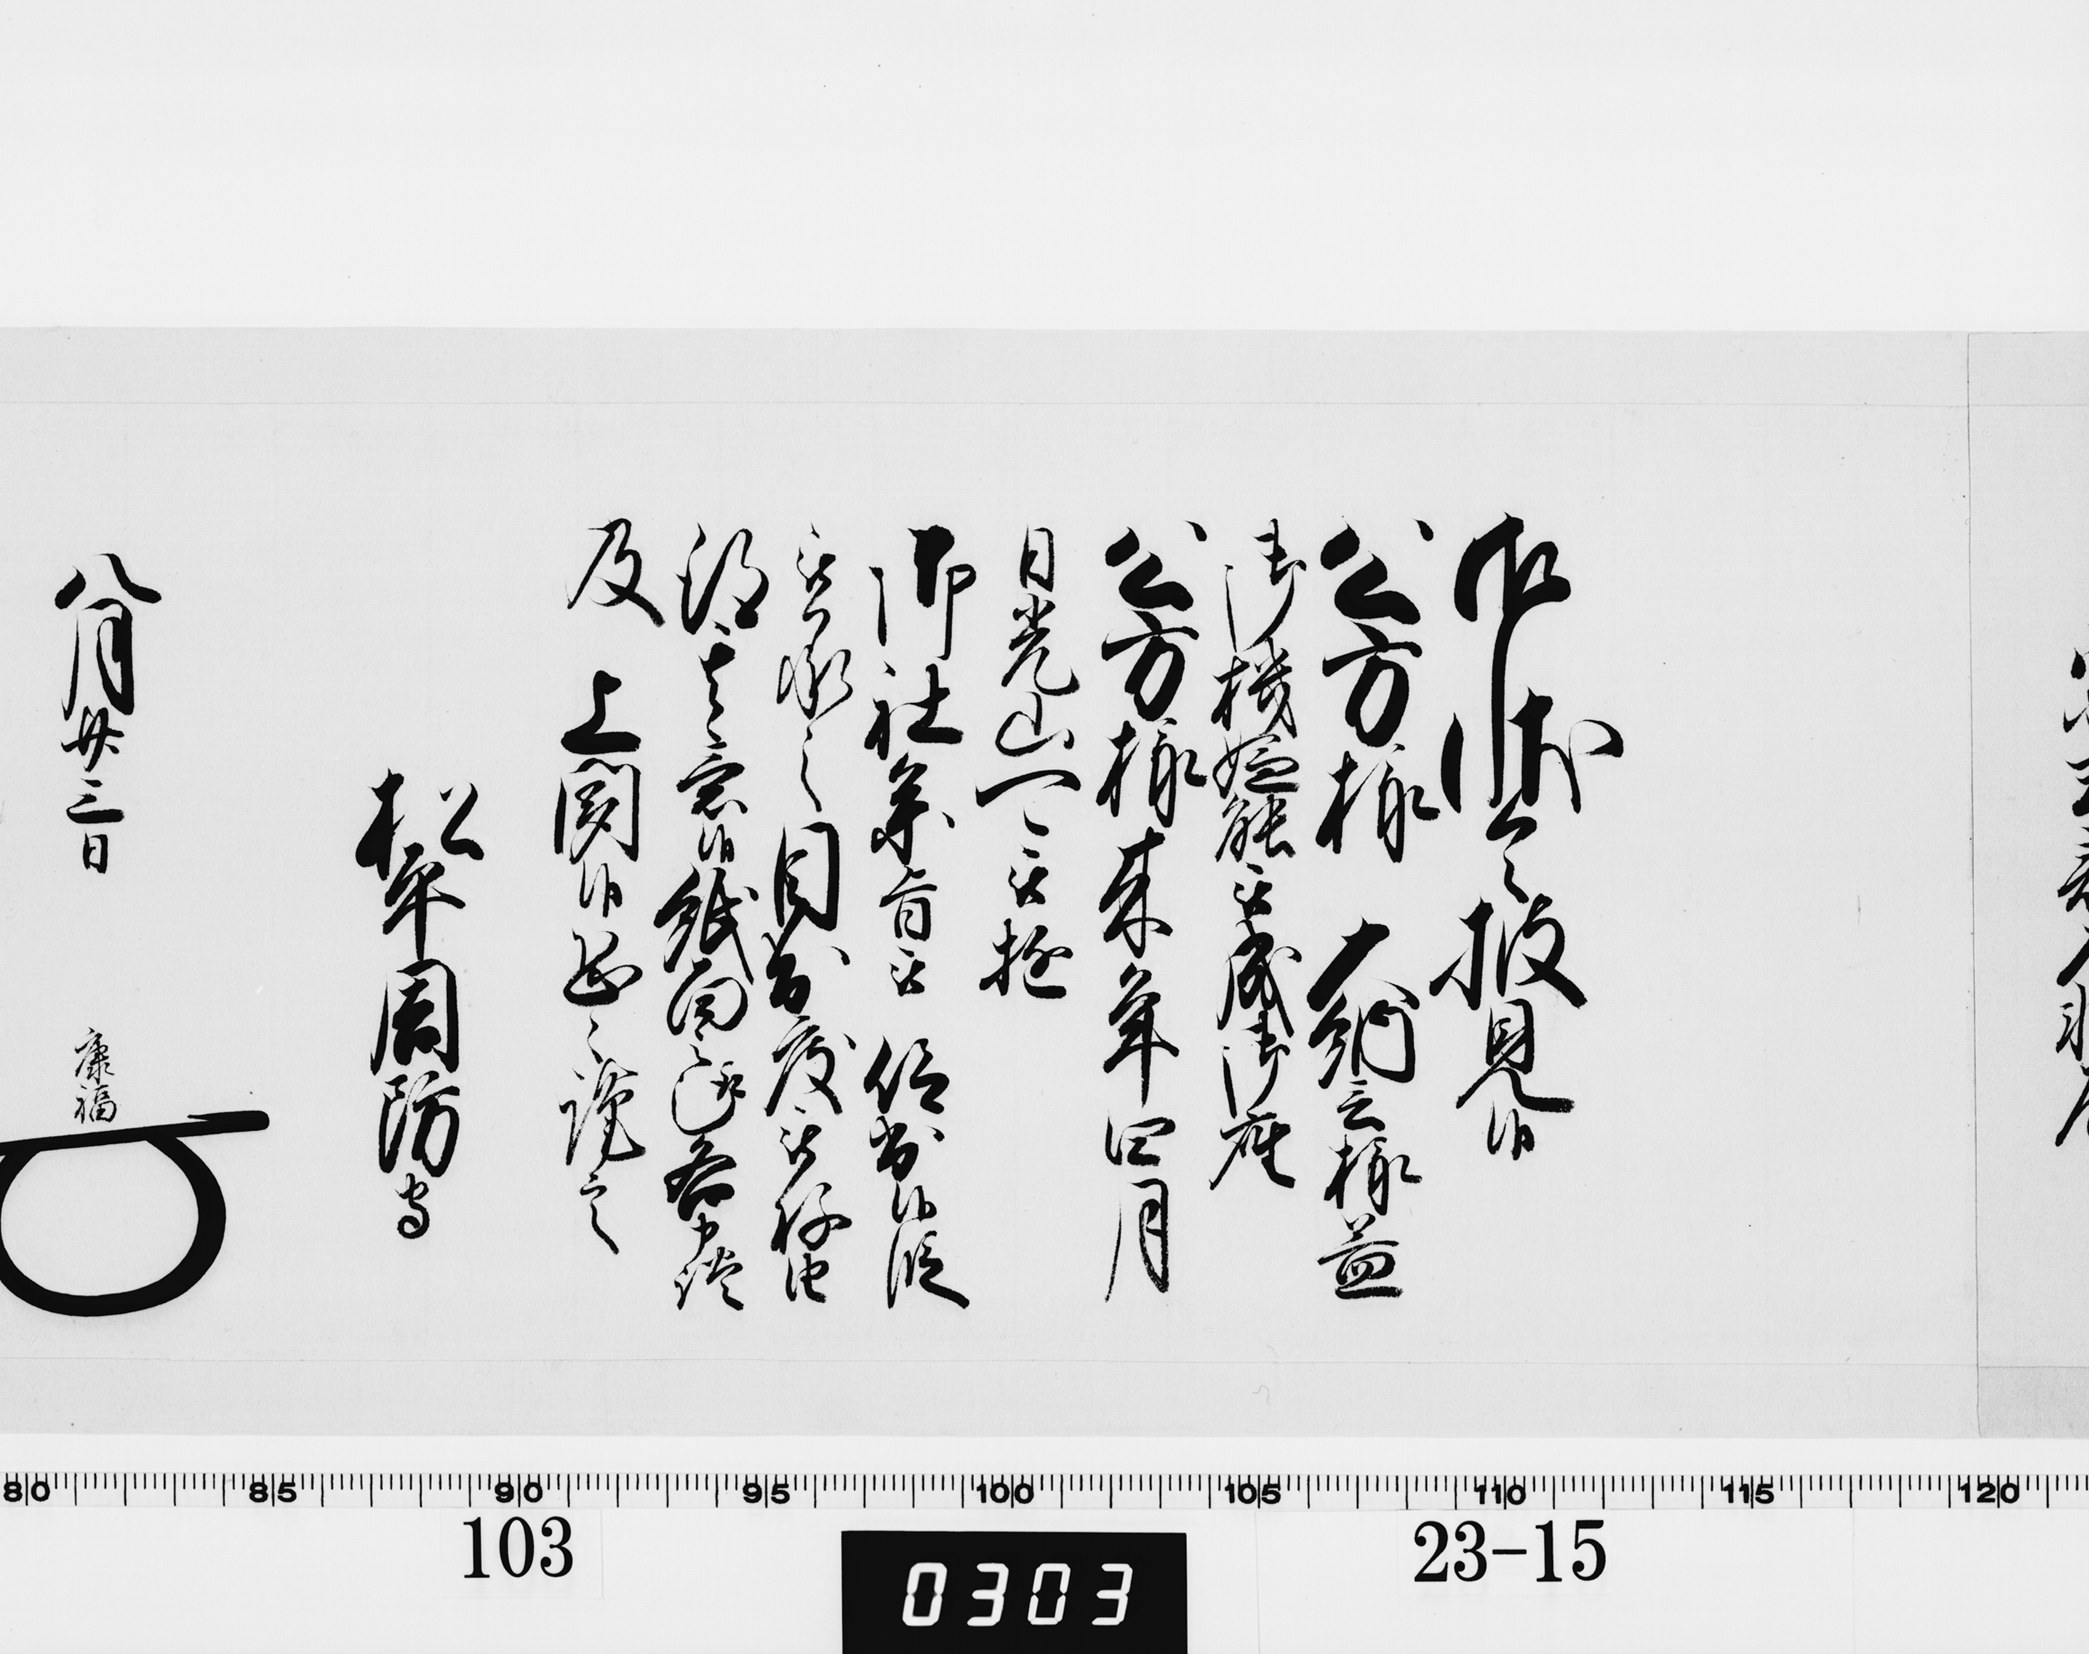 御状令披見候
公方様　大納言様益
御機嫌能被成御座
公方様来年四月
日光山江可被遊
御社参旨被　仰出候段
被承之目出度被存由
得其意候紙面之趣各申談
及　上聞候恐々謹言
松平周防守
八月廿三日　康福
80 85 90 95 100 105 110 115 120
103
23-15
0303